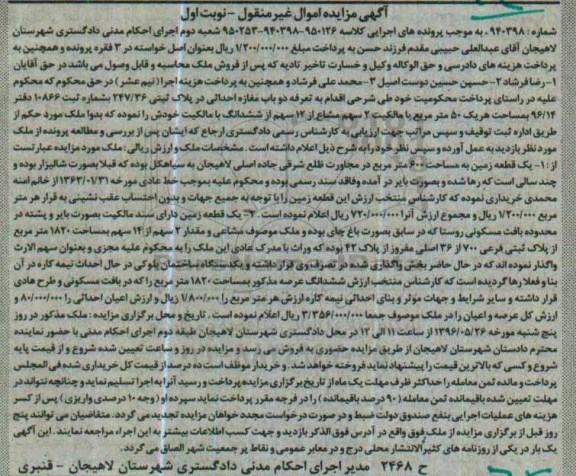 آگهی مزایده اموال غیر منقول - نوبت اول
شماره: ۹۴۰۳۹۸. به موجب پرونده های اجرایی کلاسه ۹۵۰۱۲۶-۹۴۰۳۹۸-۹۵۰۲۵۳ شعبه دوم اجرای احکام مدنی دادگستری شهرستان
لاهیجان آقای عبدالعلی حبیبی مقدم فرزند حسن به پرداخت مبلغ ۱/۲۰۰/۰۰۰/۰۰۰ ریال بعنوان اصل خواسته در ۳ فقره پرونده و همچنین به
پرداخت هزینه های دادرسی و حق الوکاله وکیل و خسارت تاخیر تادیه که پس از فروش ملک محاسبه و قابل وصول می باشد در حق آقایان
۱-رضا فرشاد ۲-حسین حسین دوست اصیل ۳-محمد علی فرشاد و همچنین به پرداخت هزینه اجرا (نیم عشر) در حق محکوم که محکوم
علیه در راستای پرداخت محکومیت خود طی شرحی اقدام به تعرفه دو باب مغازه احداثی در پلاک ثبتی ۲۴۷/۳۶ بشماره ثبت ۱۰۸۶۶ دفتر
۹۶/۱۴ بمساحت هریک ۵۰ متر مربع با مالکیت ۲ سهم مشاع از ۱۲ سهم از ششدانگ با مالکیت خودش را نموده که بدوا ملک مورد حکم از
طریق اداره ثبت توقیف و سپس مراتب جهت ارزیابی به کارشناس رسمی دادگستری ارجاع که ایشان پس از بررسی و مطالعه پرونده از ملک
مورد نظر بازدید به عمل آورده و سپس نظر خود را به شرح ذیل اعلام داشته است. مشخصات ملک و ارزش ریالی: ملک مورد مزایده عبارتست
از: ۱- یک قطعه زمین به مساحت ۶۰۰ متر مربع در مجاورت ظلع شرقی جاده اصلی لاهیجان به سیاهکل بوده که قبلا بصورت شالیزار بوده و
چند سالی است که رها شده و بصورت بایر در آمده وفاقد سند رسمی بوده و محکوم علیه بموجب خط عادی مورخه ۱۳۶۳/۰۱/۳۱ از خانم امنه
محمدی خریداری نموده که کارشناس منتخب ارزش این قطعه زمین را با توجه به جمیع جهات و بدون احتساب عقب نشینی به قرار هر متر
مربع ۱/۲۰۰/۰۰۰ ریال و مجموع ارزش آنرا ۷۲۰/۰۰۰/۰۰۰ ریال اعلام نموده است. ۲- یک قطعه زمین دارای سند مالکیت بصورت بایر و پشته در
محدوده بافت مسکونی روستا که در سابق بصورت باغ چای بوده و ملک موصوف مشاعی و مقدار ۲ سهم از ۱۴ سهم بمساحت ۱۸۲۰ متر مربع
از پلاک ثبتی فرعی ۷۰۰ از ۳۶ اصلی مفروز از پلاک ۴۲ بوده که وراث با مدرک عادی این ملک را به محکوم علیه مجزی و بعنوان سهم الارث
واگذار نموده اند که در حال حاضر بخش واگذاری شده در تصرف وی قرار داشته و یک دستگاه ساختمان بلوکی در حال احداث نیمه کاره در آن
بنا و فعلا رها گردیده است که کارشناس منتخب ارزش ششدانگ عرصه مذکور بمساحت ۱۸۲۰ متر مربع را که در بافت مسکونی و طرح هادی
قرار داشته و سایر شرایط و جهات موثر و بنای احداثی نیمه کاره ارزش هر متر مربع را ۱/۸۰۰/۰۰۰ ریال و ارزش اعیان احداثی را ۸۰/۰۰۰/۰۰۰ و
ارزش کل عرصه و اعیان را در ملک موصوف جمعا ۳/۳۵۶/۰۰۰/۰۰۰ ریال اعلام نموده است. تاریخ و محل برگزاری مزایده: ملک مذکور در روز
پنج شنبه مورخه ۱۳۹۶/۰۵/۲۶ از ساعت ۱۱ الی ۱۲ در محل دادگستری شهرستان لاهیجان طبقه دوم اجرای احکام مدنی با حضور نماینده
محترم دادستان شهرستان لاهیجان از طریق مزایده حضوری به فروش می رسد و مزایده در روز و ساعت تعیین شده شروع و از قیمت پایه
شروع و کسی که بالاترین قیمت را پیشنهاد نماید فروخته خواهد شد. و خریدار موظف است ده درصد از قیمت کل خریداری شده فی المجلس
پرداخت و مانده ثمن معامله را حداکثر ظرف مهلت یک ماه از تاریخ برگزاری مزایده پرداخت و رسید آنرا به اجرا تسلیم نماید و چنانچه نتواند در
مهلت تعیین شده باقیمانده ثمن معامله (۹۰ درصد باقیمانده) را در فرجه مقرر پرداخت نماید سپرده او (وجه ۱۰ درصدی واریزی) پس از کسر
هزینه های عملیات اجرایی بنفع صندوق دولت ضبط و در صورت درخواست مجدد خواهان مزایده تجدید می گردد. متقاضیان می توانند پنج
روز قبل از برگزاری مزایده از ملک فوق واقع در آدرس فوق الذکر بازدید و جهت کسب اطلاعات بیشتر به این اجراء مراجعه نمایند. این آگهی
یک بار در یکی از روزنامه های کثیرالانتشار محلی درج و در معابر عمومی و نقاط پر جمعیت شهر الصاق می گردد.
ح ۲۴۶۸ مدیر اجرای احکام مدنی دادگستری شهرستان لاهیجان - قنبری